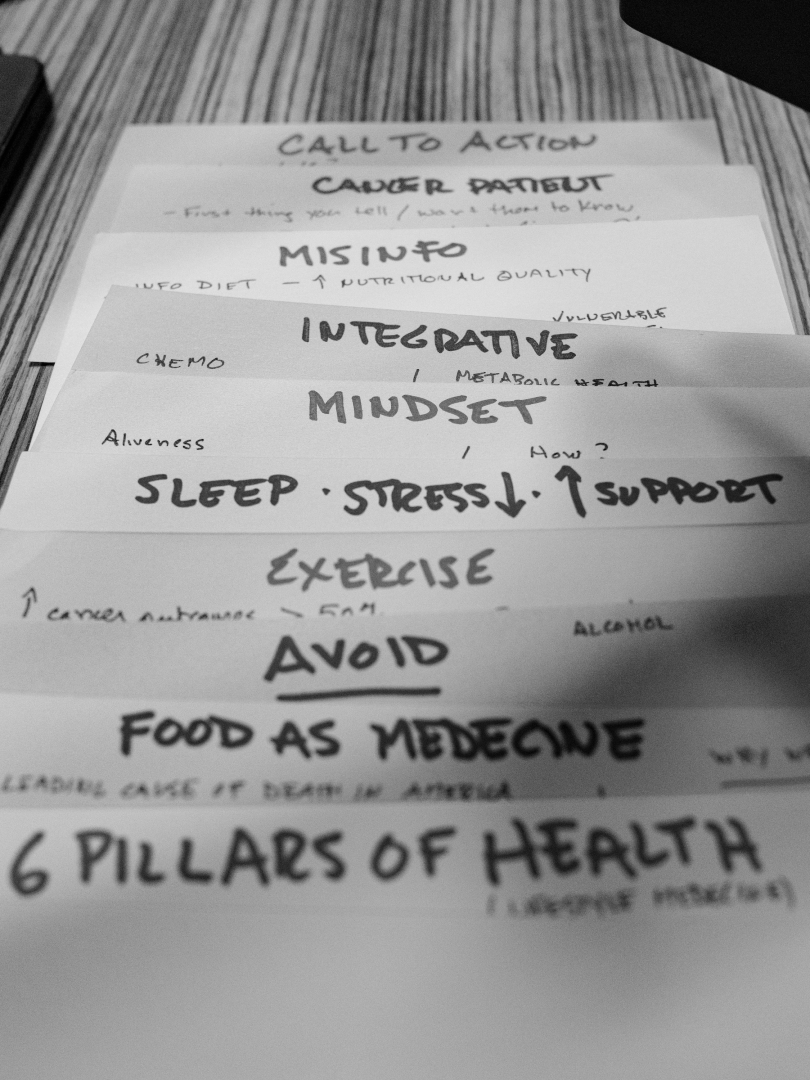 CALL TO ACTION
CANCER PATIENT
- First thing you tell / want them to know
MISINFO
INFO DIET — ↑ NUTRITIONAL QUALITY
VULNERABLE
INTEGRATIVE
CHEMO
/ METABOLIC HEALTH
MINDSET
Aliveness / How ?
SLEEP · STRESS↓ · ↑ SUPPORT
EXERCISE
↑ cancer
ALCOHOL
AVOID
FOOD AS MEDECINE
WHY
LEADING CAUSE OF DEATH IN AMERICA
6 PILLARS OF HEALTH
(LIFESTYLE MEDECINE)